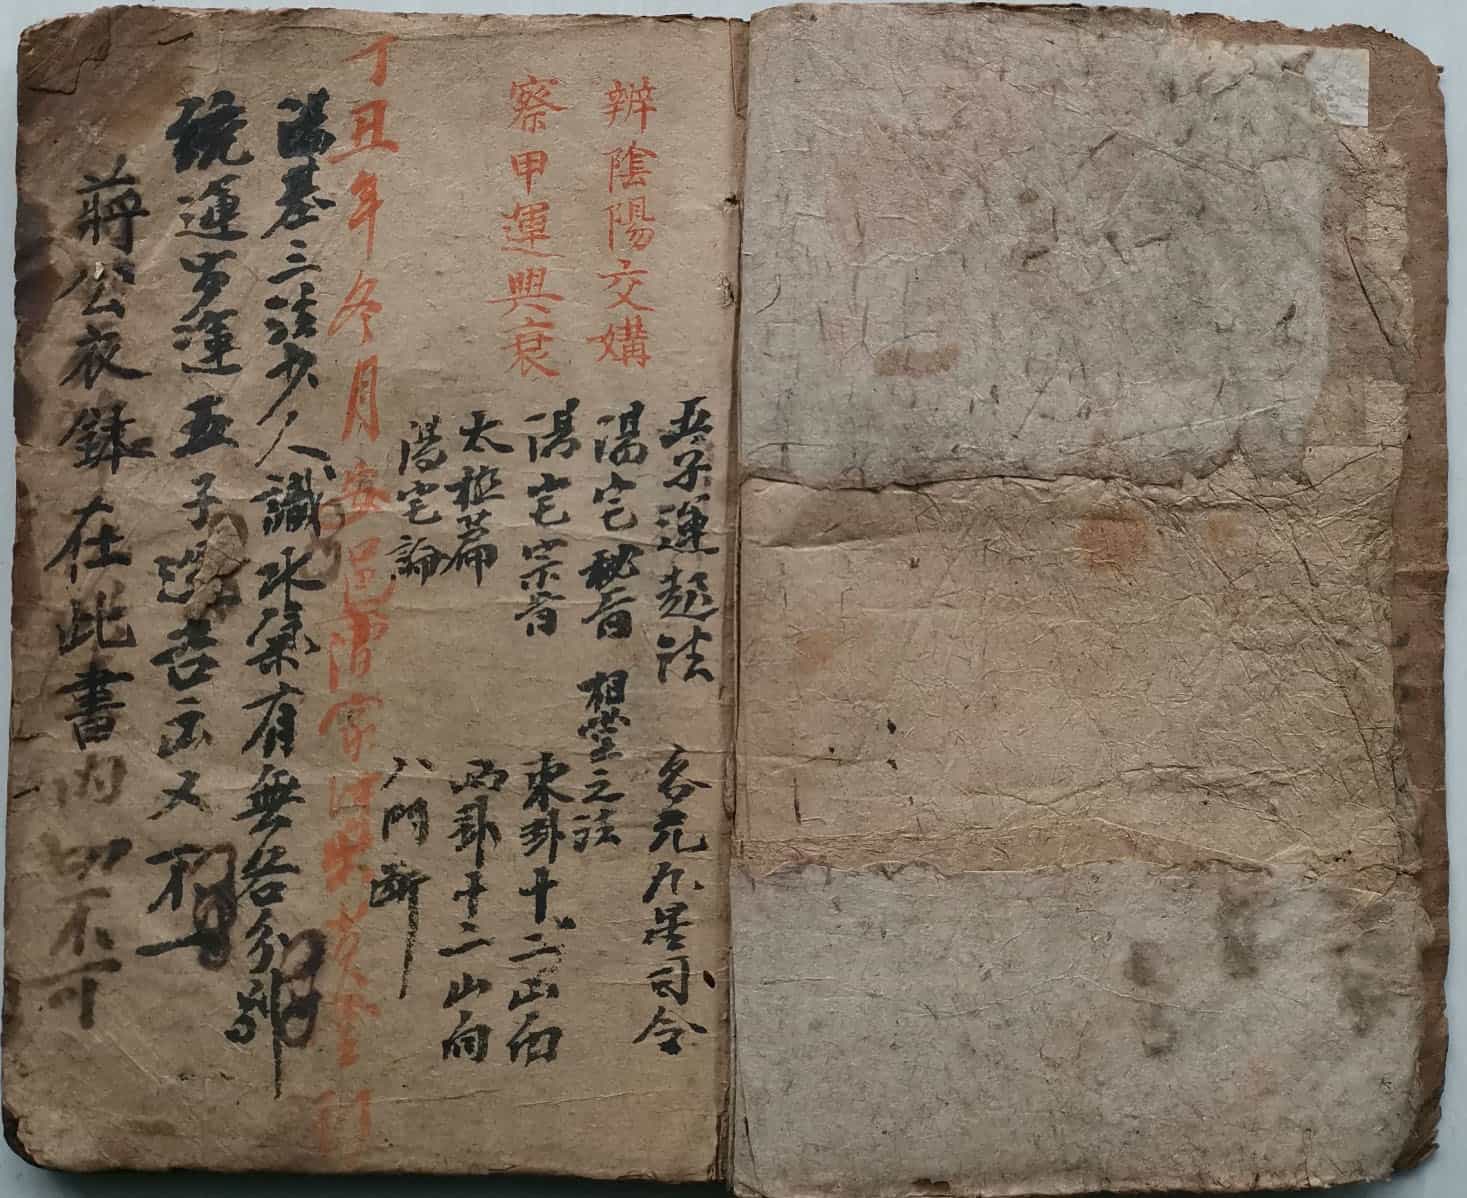 五子運起法
各元九星司令
辨陰陽交媾
陽宅秘旨
相堂之法
察甲運興衰
陽宅宗旨
東卦十二山向
太極篇
西卦十二山向
陽宅論
八門斷
丁丑年冬月
陽基三法少人識水氣有無各分別
統運歩運五子選吉凶又
蔣公衣鉢在此書内切不可